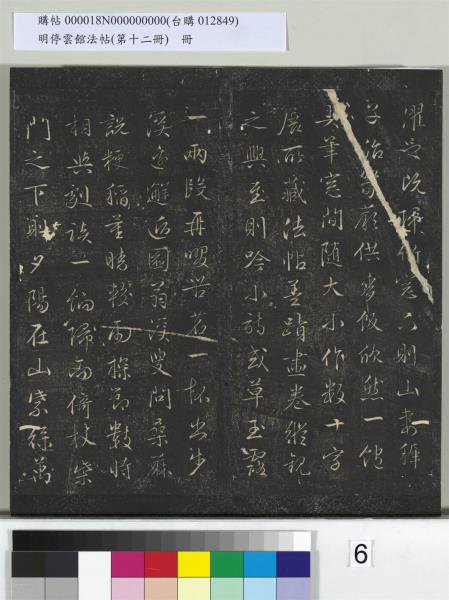 購帖 000018N000000000(台購 012849)
明停雲館法帖(第十二冊) 冊
濯足既歸竹窓下則山妻稚
子治筍蕨供麥飯欣然一飽
弄筆窓間随大小作數十字
展所藏法帖墨蹟畫卷縱觀
之興至則吟小詩或草玉露
一兩段再啜苦茗一杯出步
溪邊邂逅園翁溪叟問桑麻
說粳稻量晴校雨探節數時
相與劇談一餉歸而倚杖柴
門之下則夕陽在山紫綠萬
6